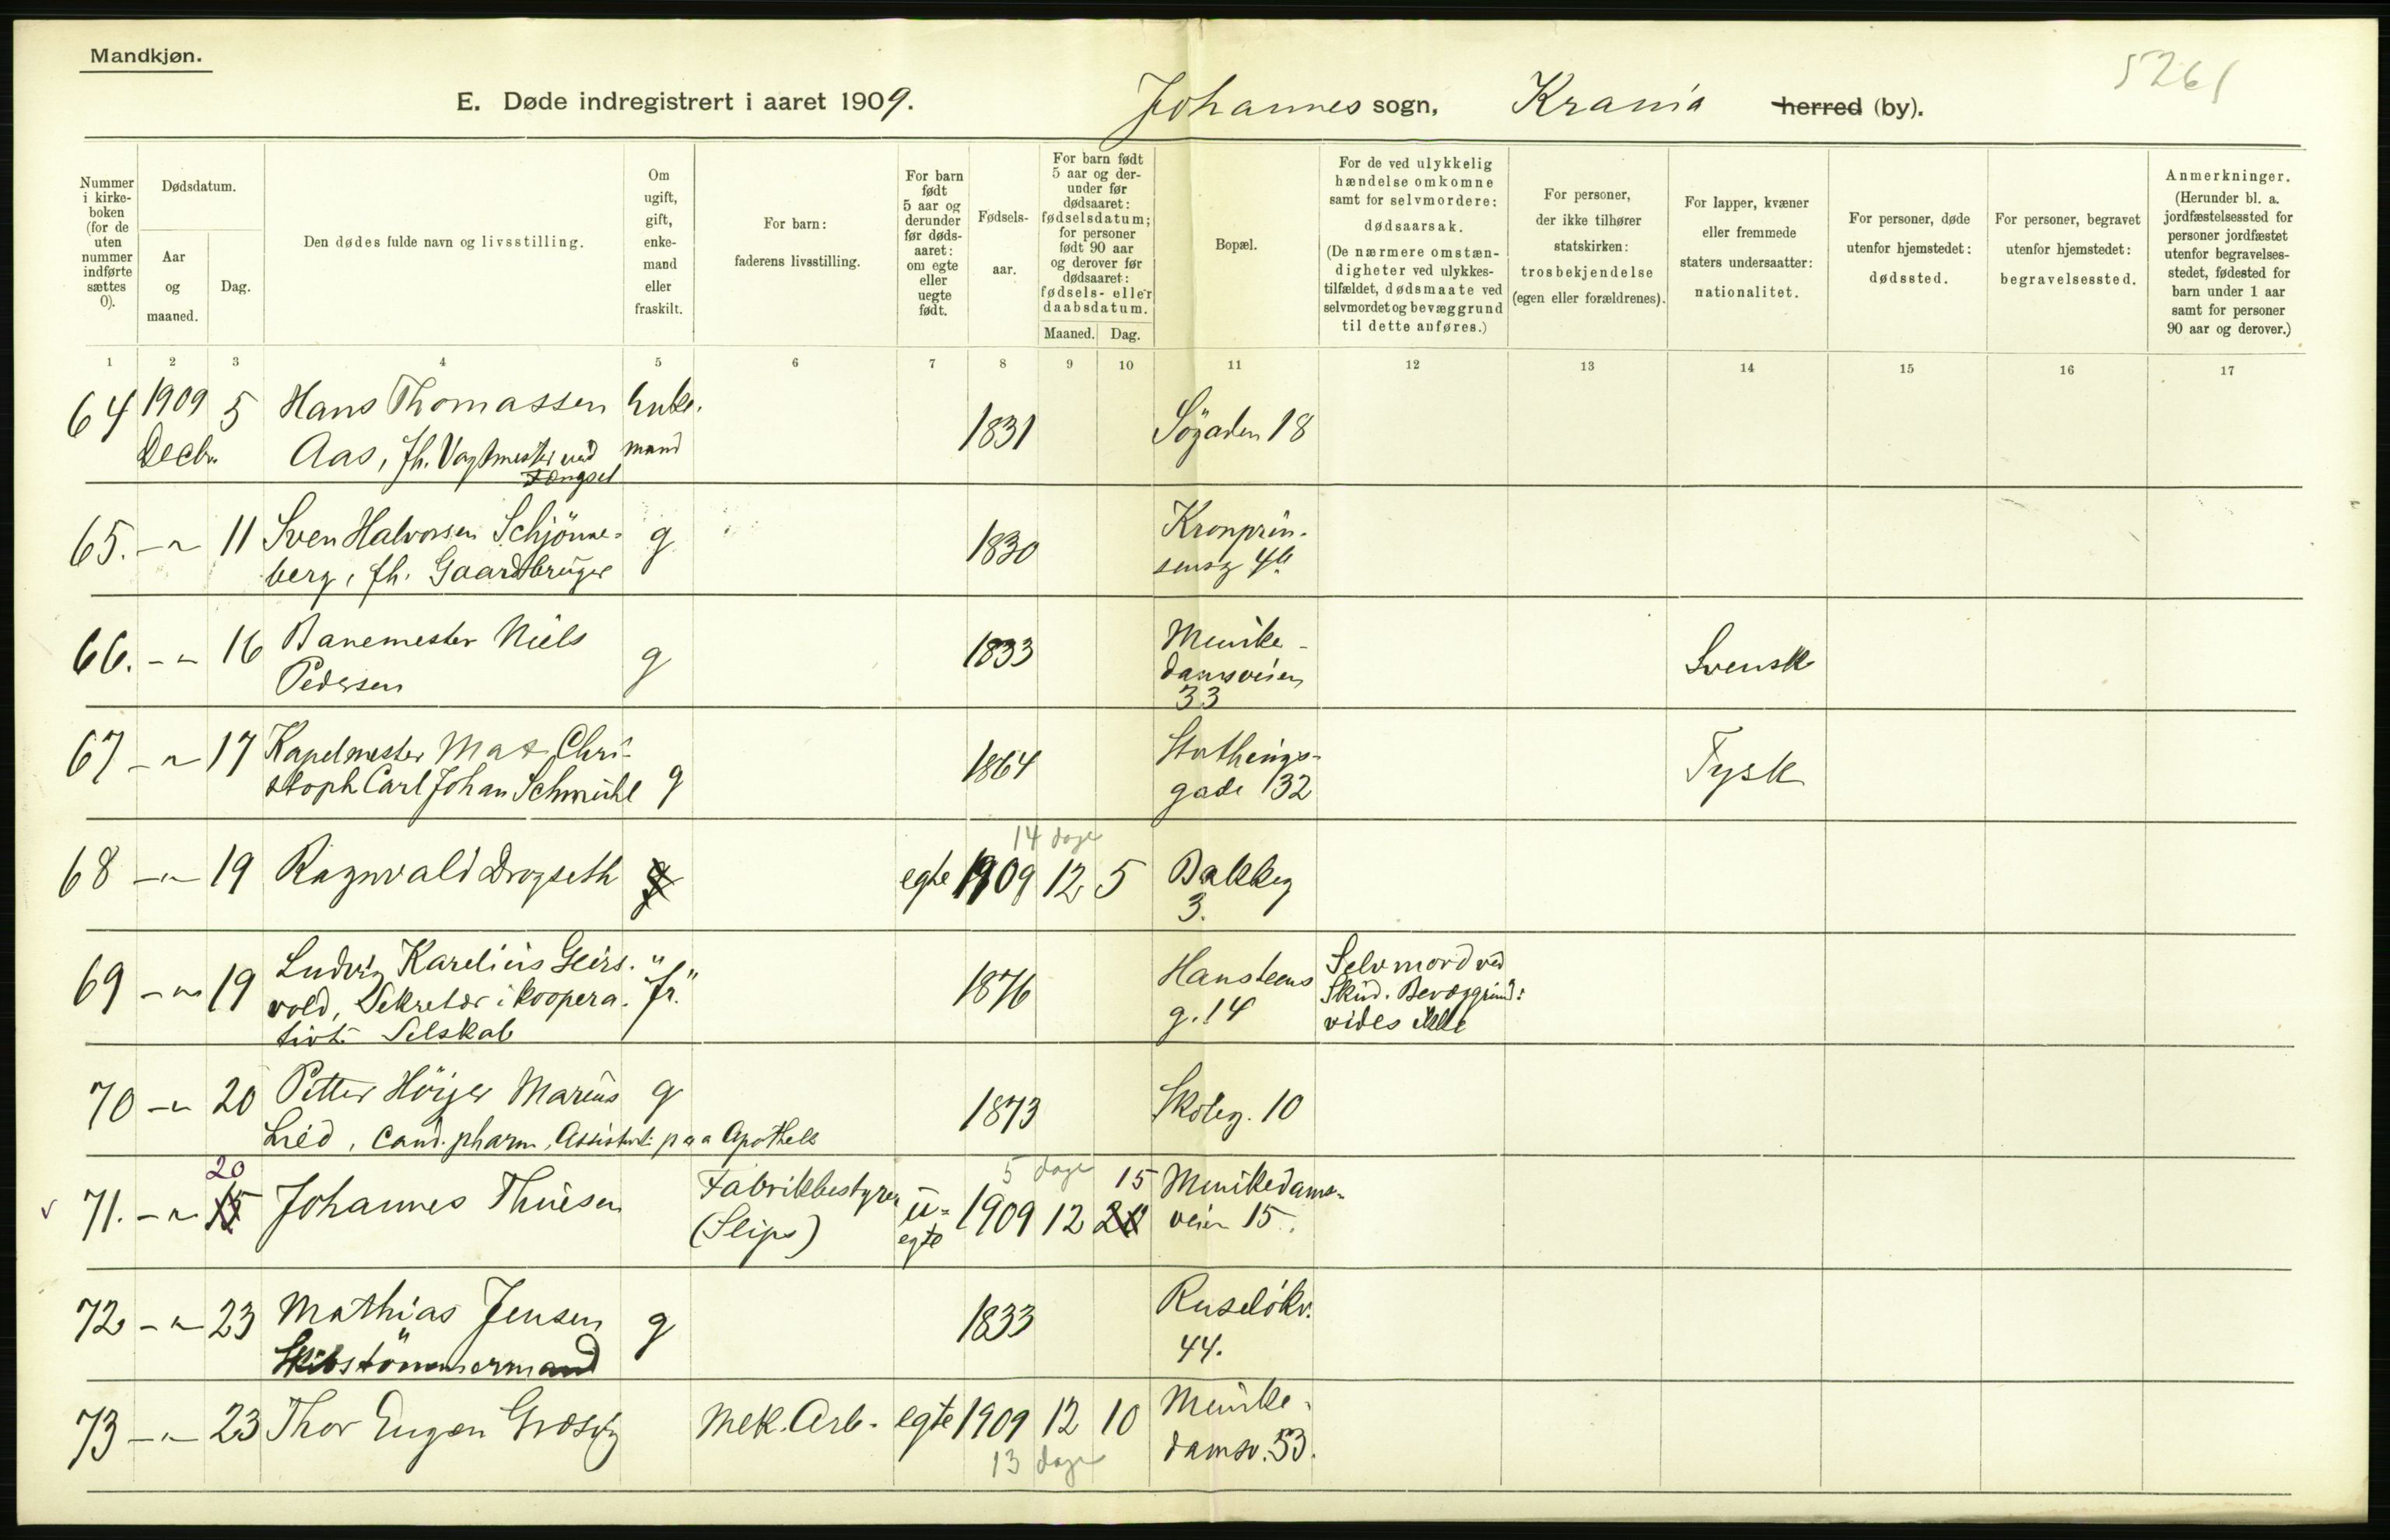 Mandkjøn.
5261
E. Døde indregistrert i aaret 1909. Johannes sogn, Krania herred (by).
Nummer i kirke-boken (for de uten nummer indførte sættes 0).
Dødsdatum.
Aar og maaned.
Dag.
Den dødes fulde navn og livsstilling.
Om ugift, gift, enke-mand eller fraskilt.
For barn: faderens livsstilling.
For barn født 5 aar og derunder før døds-aaret: om egte eller uegte født.
Fødsels-aar.
For barn født 5 aar og der-under før dødsaaret: fødselsdatum; for personer født 90 aar og derover før dødsaaret: fødsels- eller daabsdatum.
Maaned. Dag.
Bopæl.
For de ved ulykkelig hændelse omkomne samt for selvmordere: dødsaarsak. (De nærmere omstæn-digheter ved ulykkes-tilfældet, dødsmaate ved selvmordet og bevæggrund til dette anføres.)
For personer, der ikke tilhører statskirken: trosbekjendelse (egen eller forældrenes).
For lapper, kvæner eller fremmede staters undersaatter: nationalitet.
For personer, døde utenfor hjemstedet: dødssted.
For personer, begravet utenfor hjemstedet: begravelsessted.
Anmerkninger. (Herunder bl. a. jordfæstelsessted for personer jordfæstet utenfor begravelses-stedet, fødested for barn under 1 aar samt for personer 90 aar og derover.)
1 2 3 4 5 6 7 8 9 10 11 12 13 14 15 16 17
64 1909 5 Hans Thomassen Enke- 1831 Søgaden 18
Decbr. Aas, fh. Vagtmester ved mand
Fængsel
65. -"- 11 Sven Halvorsen Schjönne- g 1830 Kronprin-
berg, fh. Gaardbruger sensg 4b
66. -"- 16 Banemester Niels g 1833 Munke- Svensk
Pedersen damsveien
33
67 -"- 17 Kapelmester Max Chri- 1864 Storthings- Tysk
stoph Carl Johan Schmühl g gade 32
14 dage
68 -"- 19 Ragnvald Drogseth g egte 1909 12 5 Bakkeg
3.
69 -"- 19 Ludvig Karelius Geirs- "fr." 1876 Hansteens Selvmord ved
vold, Sekretær i koopera- g. 14 Skud. Bevæggrund:
tivt Selskab vides ikke
70 -"- 20 Petter Höijer Marius g 1873 Skoleg. 10
Lied, Cand. pharm, Assistent paa Apothek
20 5 dage 15
71. -"- 15 Johannes Thuesen Fabrikbestyrer u- 1909 12 20 Munkedams-
(Slips) egte veien 15.
72 -"- 23 Mathias Jensen g 1833 Ruselökv.
Skibstömmermand 44.
73 -"- 23 Thor Eugen Græsvig Mek. Arb. egte 1909 12 10 Munke-
13 dage damsv. 53.